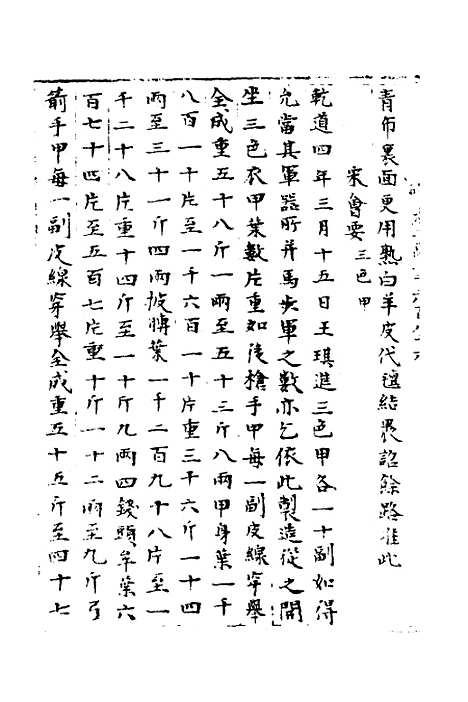 青布裏面更用熟白羊皮代氊結裹詔餘路准此
宋會要 三色甲
乾道四年三月十五日王琪進三色甲各一十副如得
允當其軍器所并馬步軍之數亦乞依此製造從之開
坐三色衣甲葉數片重如後槍手甲每一副皮線穿舉
全成重五十八斤一兩至五十三斤八兩甲身葉一千
八百一十片至一千六百一十片重三十六斤一十四
兩至三十一斤四兩披膊葉一千二百九十八片至一
千二十八片重十四斤至一十斤九兩四錢頭牟葉六
百七十四片至五百七片重十斤一十二兩至九斤弓
箭手甲每一副皮線穿舉全成重五十五斤至四十七